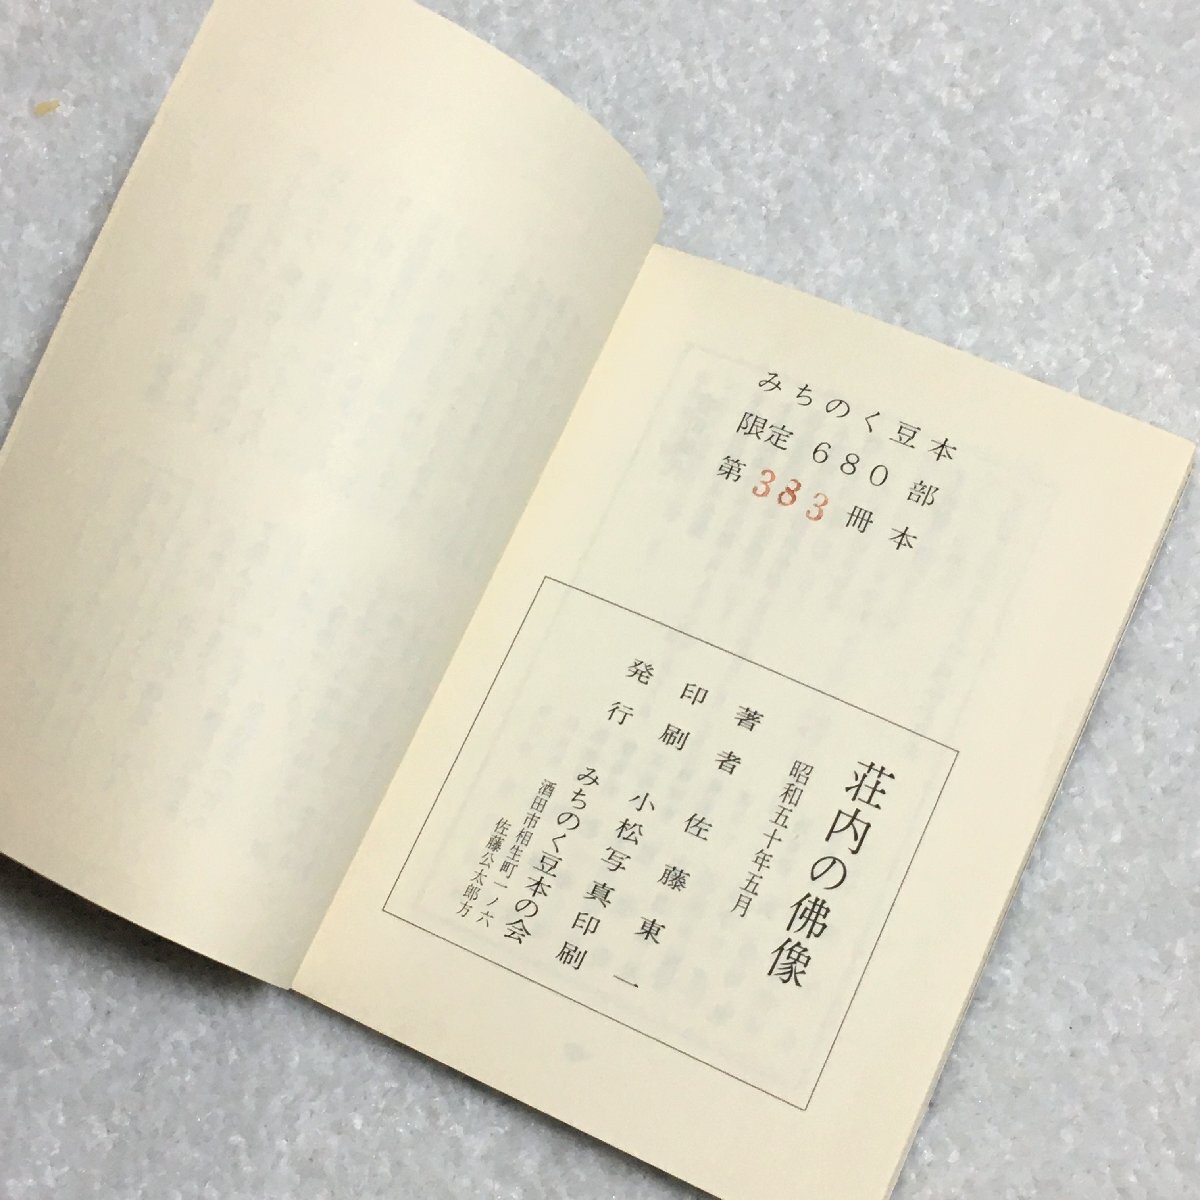 みちのく豆本
限定 680 部
第 383 冊本
荘内の佛像
昭和五十年五月
著者 佐藤東一
印刷 小松写真印刷
発行 みちのく豆本の会
酒田市相生町一ノ六
佐藤公太郎方